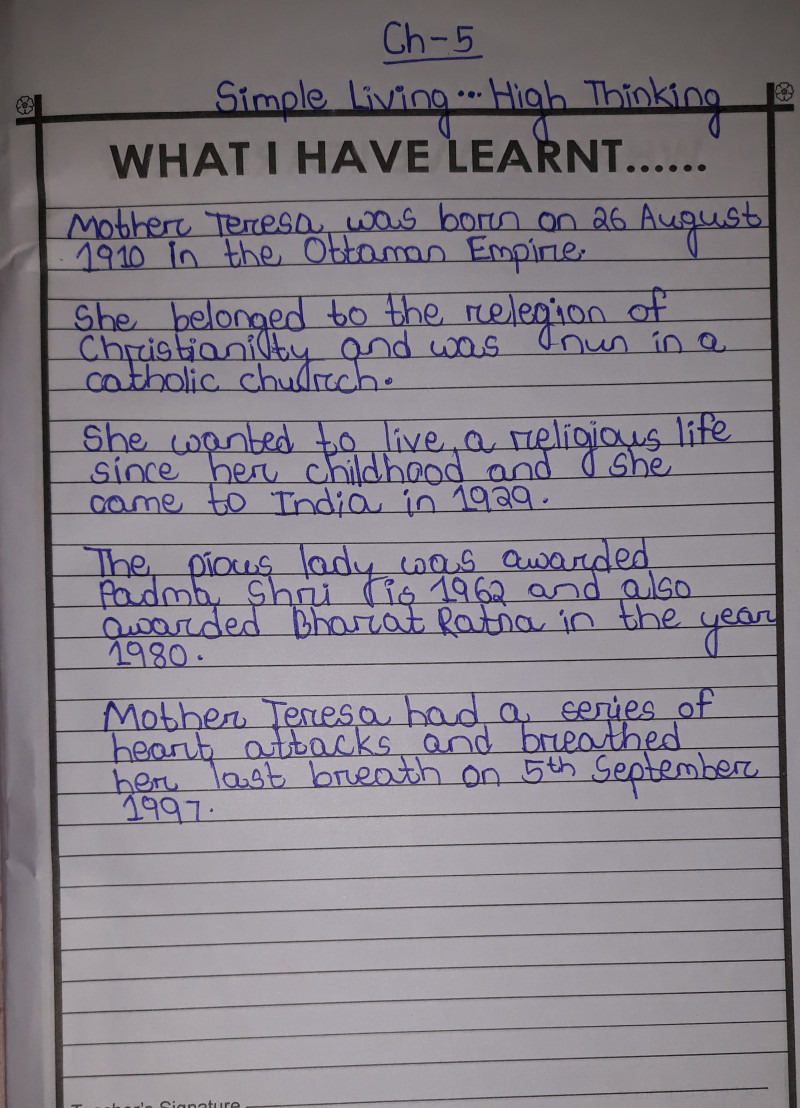 Ch-5
Simple Living...High Thinking
WHAT I HAVE LEARNT......
Mother Teresa was born on 26 August
1910 in the Ottaman Empire.
She belonged to the relegion of
Christianity and was nun in a
catholic church.
She wanted to live a religious life
since her childhood and she
came to India in 1929.
The pious lady was awarded
Padma Shri in 1962 and also
awarded Bharat Ratna in the year
1980.
Mother Teresa had a series of
heart attacks and breathed
her last breath on 5th September
1997.
Teacher's Signature